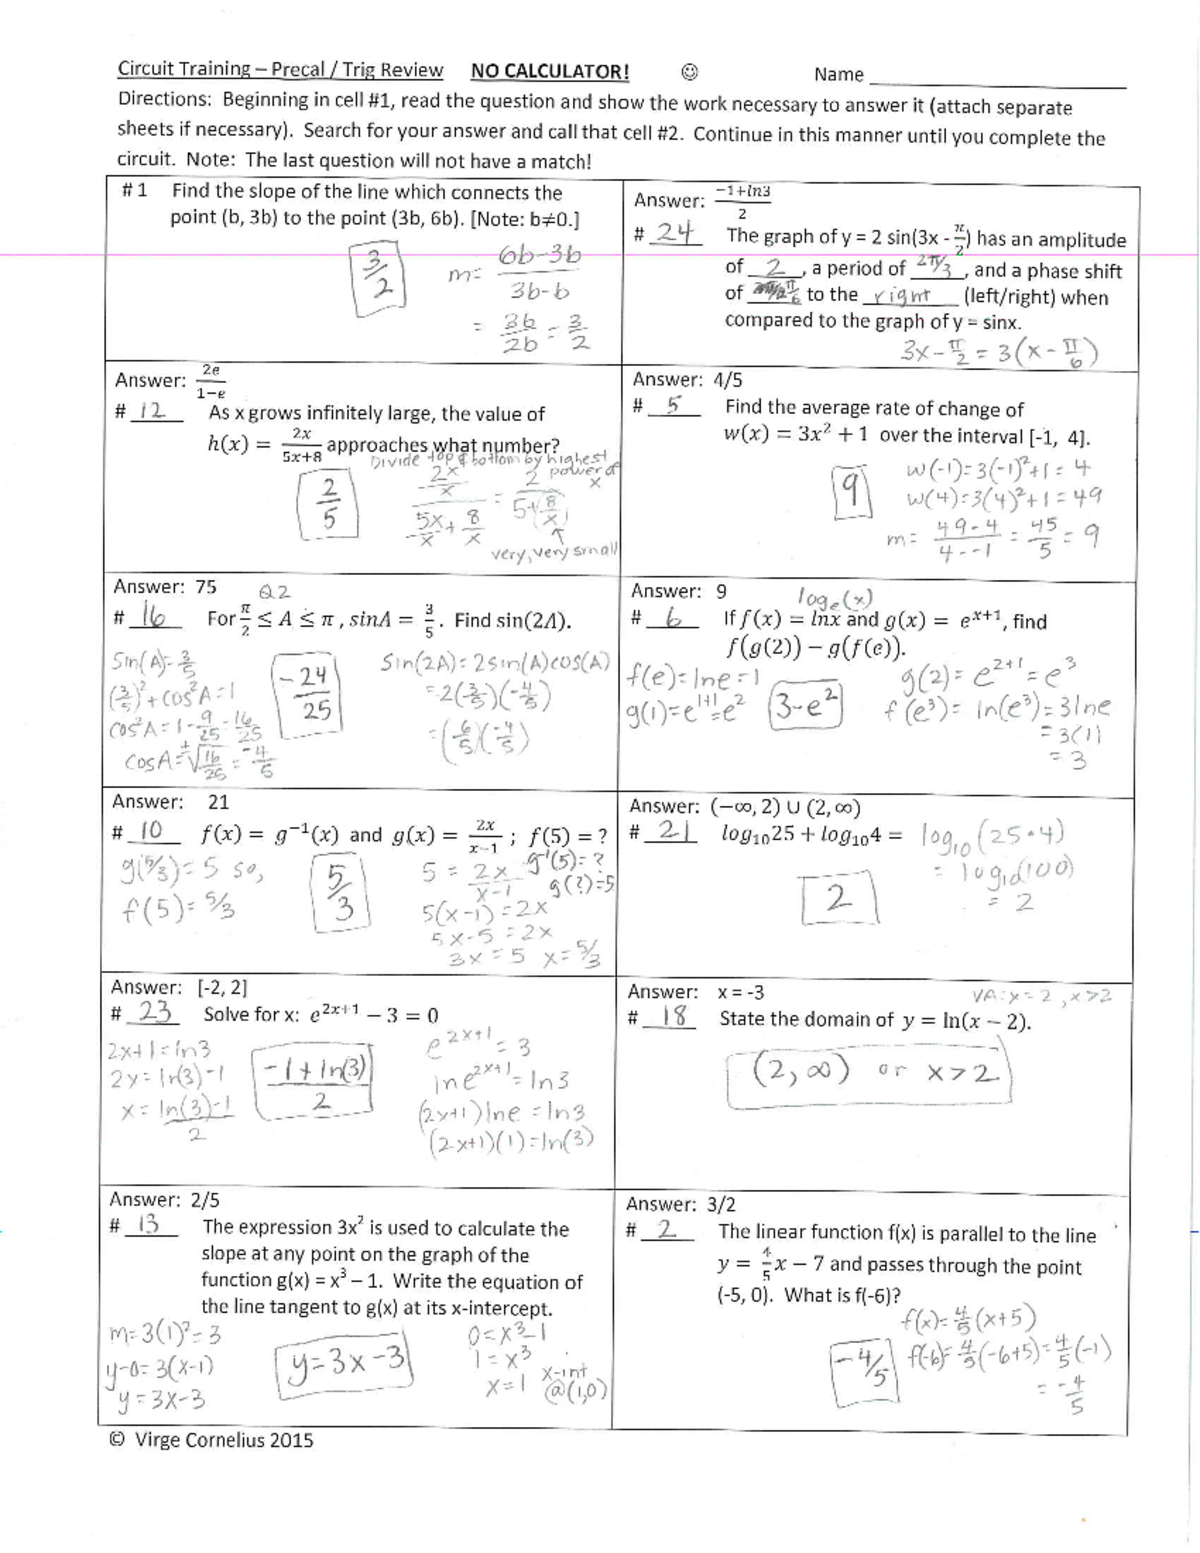 Circuit Training – Precal / Trig Review NO CALCULATOR! ☺ Name
Directions: Beginning in cell #1, read the question and show the work necessary to answer it (attach separate
sheets if necessary). Search for your answer and call that cell #2. Continue in this manner until you complete the
circuit. Note: The last question will not have a match!
# 1 Find the slope of the line which connects the
point (b, 3b) to the point (3b, 6b). [Note: b≠0.]
3/2
m= (6b-3b)/(3b-b)
= 3b/2b = 3/2
Answer: (−1+ln3)/2
# 24 The graph of y = 2 sin(3x - π/2) has an amplitude
of 2, a period of 2π/3, and a phase shift
of π/6 to the right (left/right) when
compared to the graph of y = sinx.
3x - π/2 = 3(x - π/6)
Answer: 2e/(1−e)
# 12 As x grows infinitely large, the value of
h(x) = 2x/(5x+8) approaches what number?
Divide top & bottom by highest
power of
x
2/5
(2x/x)/(5x/x + 8/x) = 2/(5+(8/x))
↑
very, very small
Answer: 4/5
# 5 Find the average rate of change of
w(x) = 3x² + 1 over the interval [-1, 4].
9
w(-1)=3(-1)²+1 = 4
w(4)=3(4)²+1 = 49
m= (49-4)/(4--1) = 45/5 = 9
Answer: 75 Q2
# 16 For π/2 ≤ A ≤ π, sinA = 3/5. Find sin(2A).
Sin(A)=3/5
(3/5)²+cos²A=1
cos²A=1-9/25=16/25
cosA=±√(16/25)=-4/5
-24/25
Sin(2A)=2sin(A)cos(A)
=2(3/5)(-4/5)
=(6/5)(-4/5)
Answer: 9 logₑ(x)
# 6 If f(x) = lnx and g(x) = eˣ⁺¹, find
f(g(2)) − g(f(e)).
f(e)=lne=1
g(1)=e¹⁺¹=e²
3-e²
g(2)=e²⁺¹=e³
f(e³)= ln(e³)=3lne
=3(1)
=3
Answer: 21
# 10 f(x) = g⁻¹(x) and g(x) = 2x/(x−1) ; f(5) = ?
g(5/3)=5 so,
f(5)=5/3
5/3
g⁻¹(5)=?
g(?)=5
5 = 2x/(x-1)
5(x-1)=2x
5x-5=2x
3x=5 x=5/3
Answer: (−∞, 2) ∪ (2, ∞)
# 21 log₁₀25 + log₁₀4 = log₁₀(25·4)
= log₁₀(100)
= 2
2
Answer: [-2, 2]
# 23 Solve for x: e²ˣ⁺¹ − 3 = 0
2x+1=ln3
2x=ln(3)-1
x=(ln(3)-1)/2
(-1+ln(3))/2
e²ˣ⁺¹=3
lne²ˣ⁺¹=ln3
(2x+1)lne=ln3
(2x+1)(1)=ln(3)
Answer: x = -3 VA: x=2, x>2
# 18 State the domain of y = ln(x − 2).
(2,∞) or x>2
Answer: 2/5
# 13 The expression 3x² is used to calculate the
slope at any point on the graph of the
function g(x) = x³ – 1. Write the equation of
the line tangent to g(x) at its x-intercept.
m=3(1)²=3
y-0=3(x-1)
y=3x-3
y=3x-3
0=x³-1
1=x³
x=1
x-int
@(1,0)
Answer: 3/2
# 2 The linear function f(x) is parallel to the line
y = 4/5x − 7 and passes through the point
(-5, 0). What is f(-6)?
-4/5
f(x)=4/5(x+5)
f(-6)=4/5(-6+5)=4/5(-1)
= -4/5
© Virge Cornelius 2015